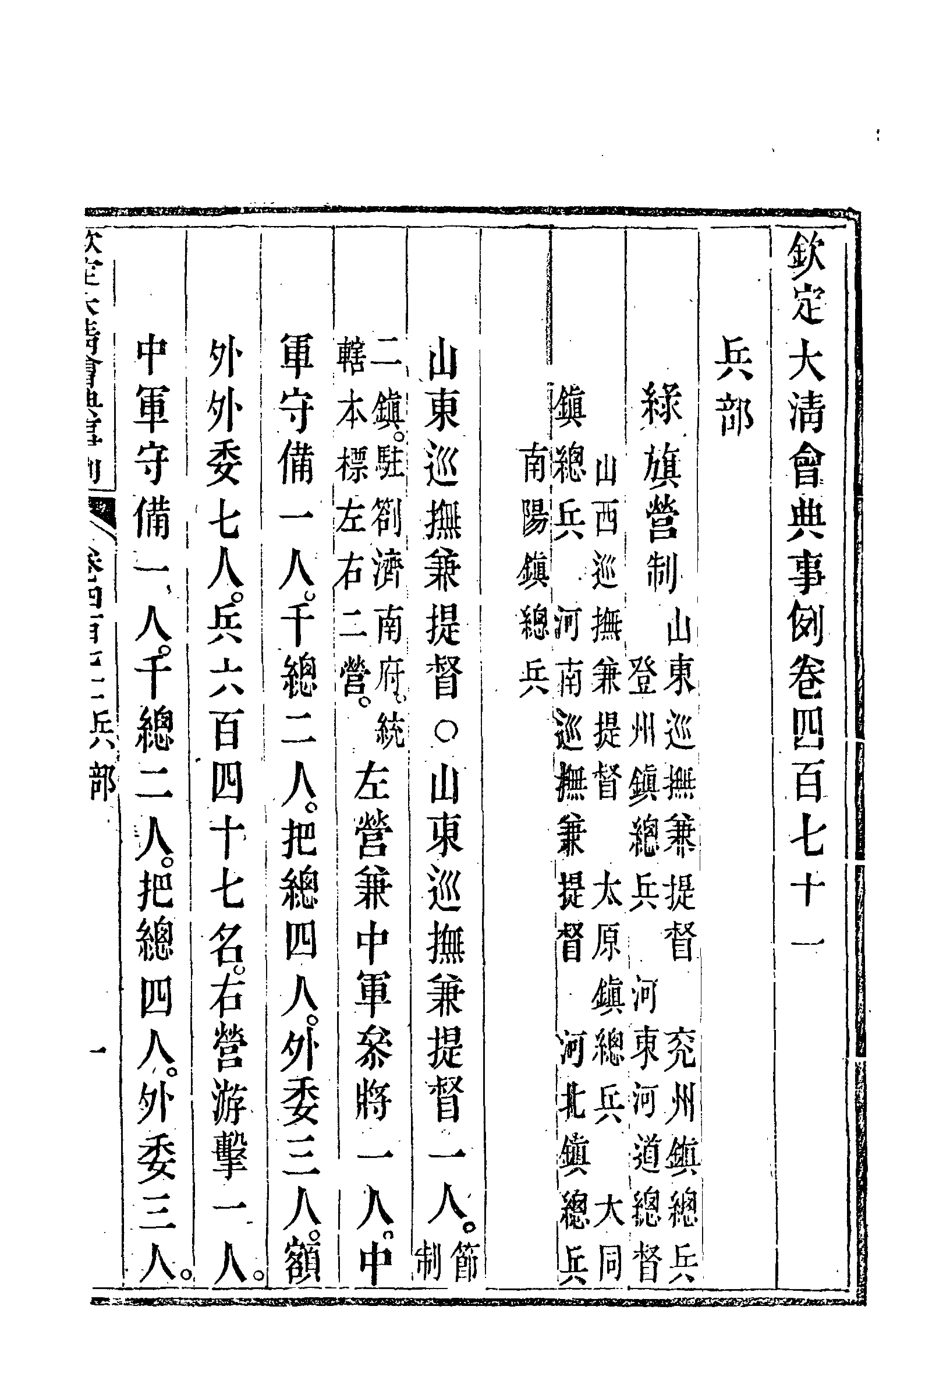 欽定大清會典事例卷四百七十一
兵部
綠旗營制
山東巡撫兼提督　兖州鎮總兵
登州鎮總兵　河東河道總督
山西巡撫兼提督　太原鎮總兵　大同
鎮總兵　河南巡撫兼提督　河北鎮總兵
南陽鎮總兵
山東巡撫兼提督○山東巡撫兼提督一人。節制
二鎮。駐劄濟南府。統
轄本標左右二營。
左營兼中軍叅將一人。中
軍守備一人。千總二人。把總四人。外委三人。額
外外委七人。兵六百四十七名。右營游擊一人。
中軍守備一人。千總二人。把總四人。外委三人。
欽定大清會典事例　卷四百七十一兵部　一